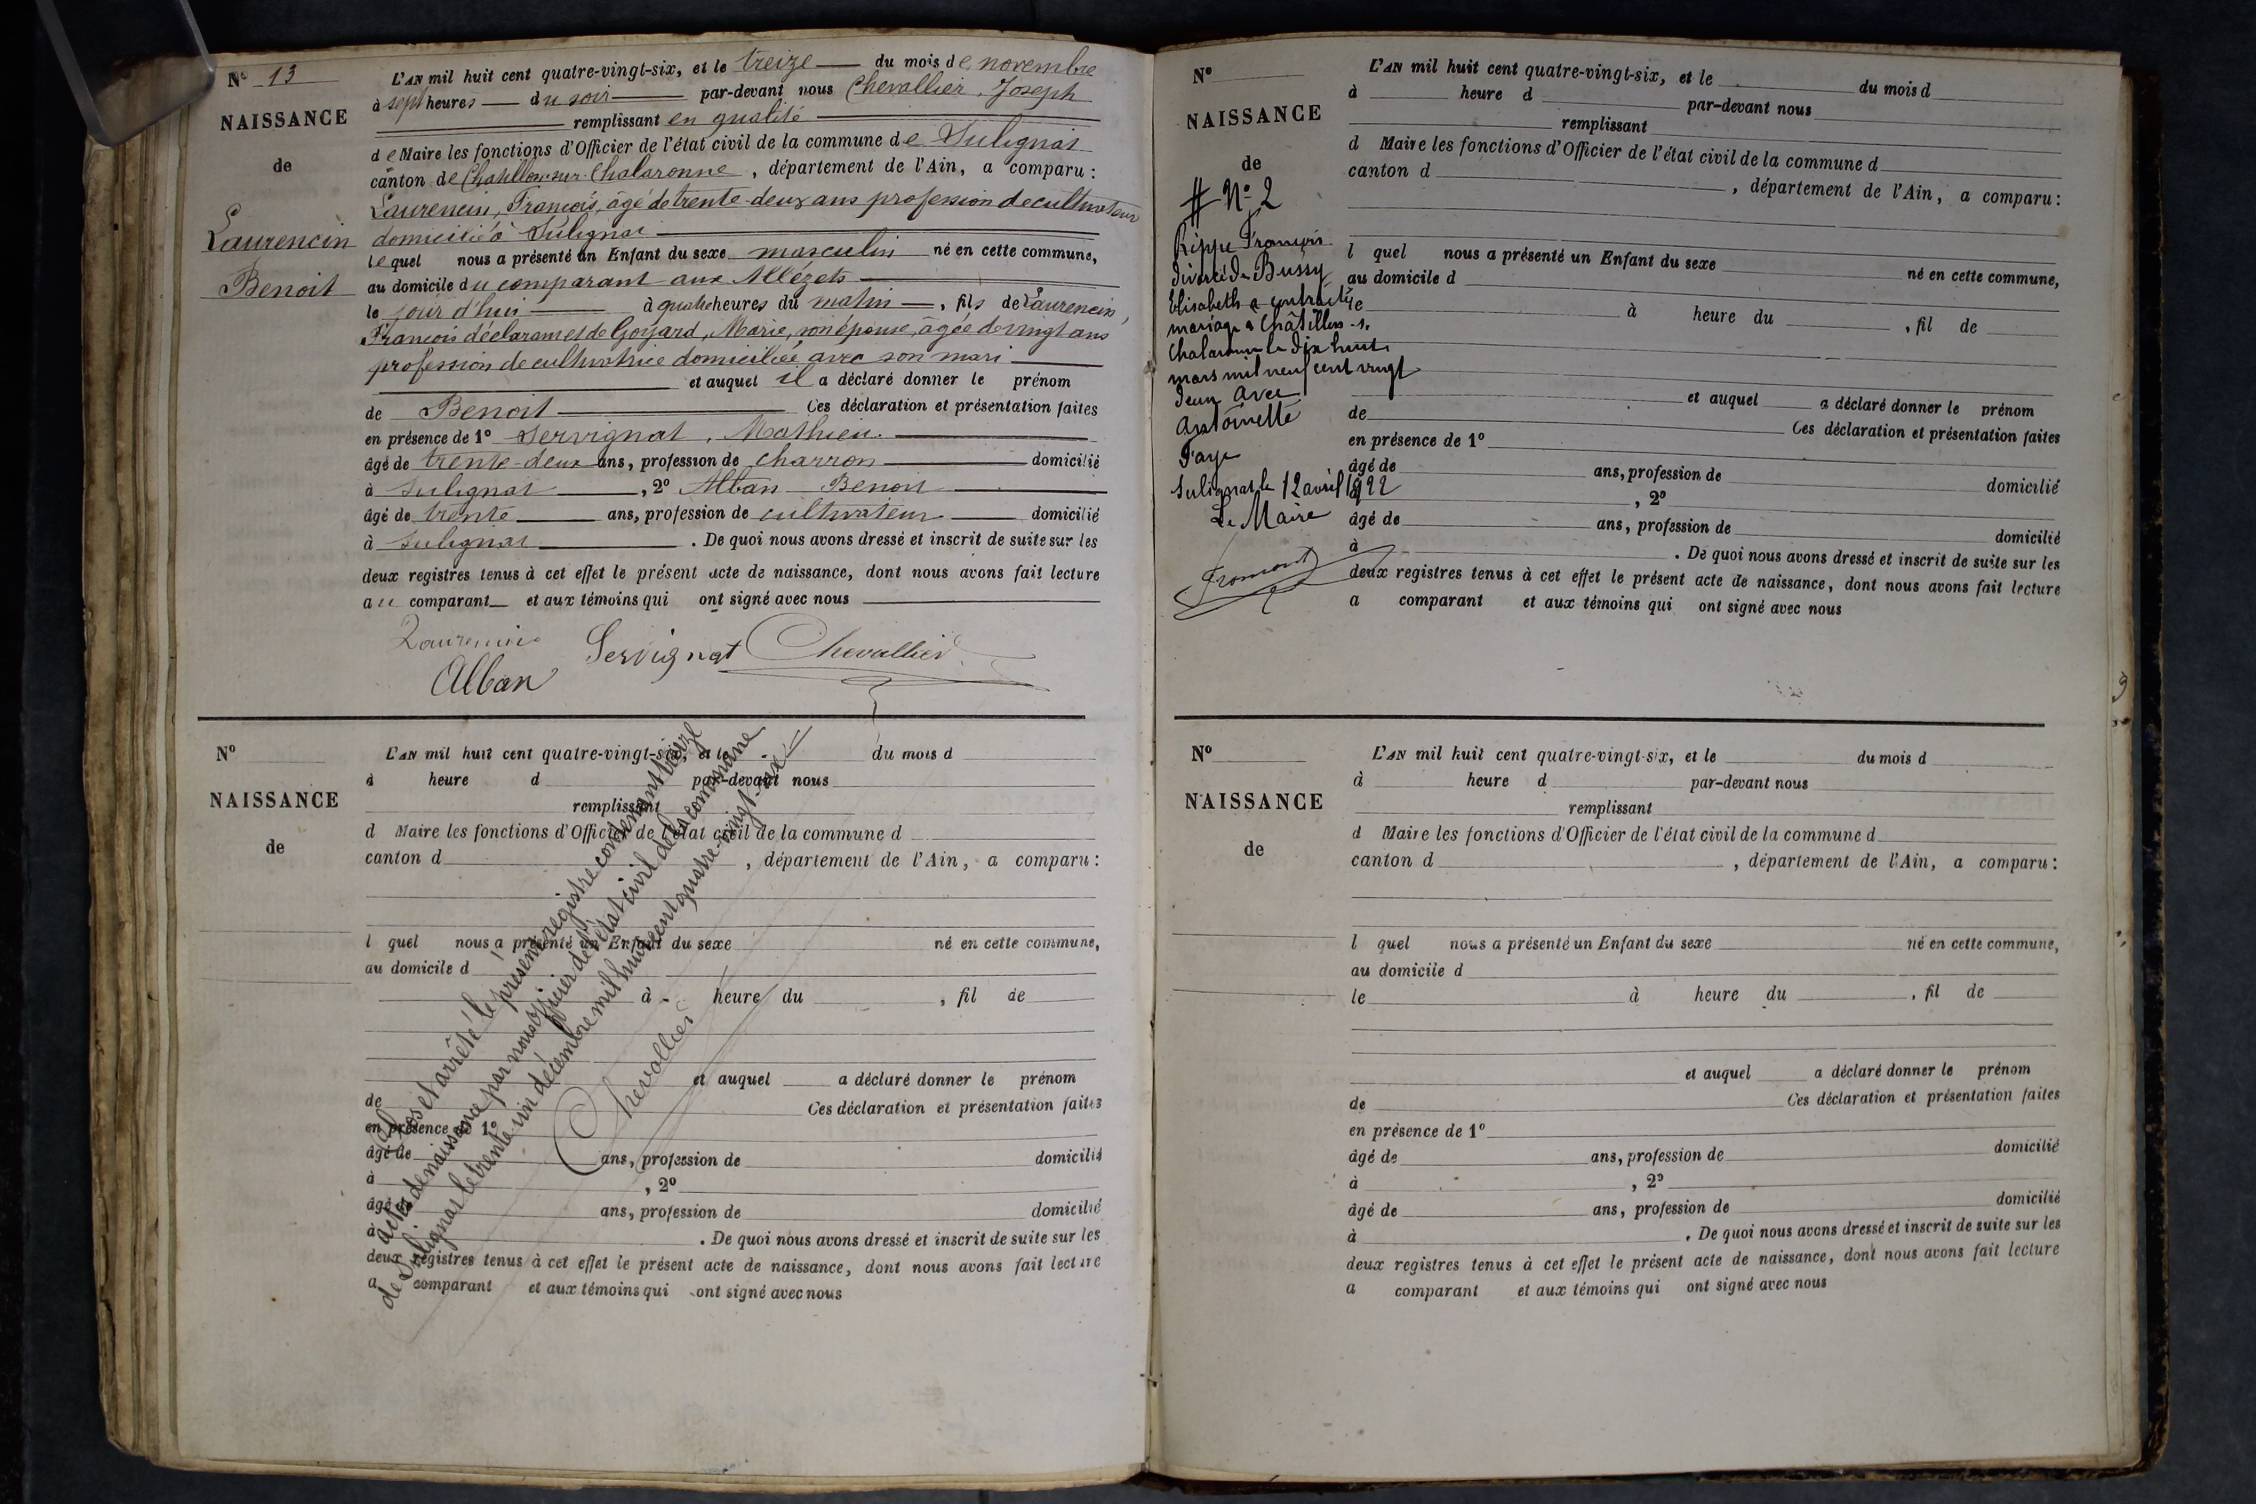 N° 13
NAISSANCE
de
Laurencin
Benoit
L'AN mil huit cent quatre-vingt-six, et le treize du mois de novembre
à sept heures du soir par-devant nous Chevallier, Joseph
remplissant en qualité
de Maire les fonctions d'Officier de l'état civil de la commune de Sulignat
canton de Chatillon-sur-Chalaronne, département de l'Ain, a comparu :
Laurencin, François, âgé de trente-deux ans profession de cultivateur
domicilié à Sulignat
lequel nous a présenté un Enfant du sexe masculin né en cette commune,
au domicile du comparant aux Allézets
le jour d'hui à quatre heures du matin, fils de Laurencin,
François déclarant et de Goyard, Marie, son épouse, âgée de vingt ans
profession de cultivatrice domiciliée avec son mari
et auquel il a déclaré donner le prénom
de Benoit Ces déclaration et présentation faites
en présence de 1° Servignat, Mathieu
âgé de trente-deux ans, profession de charron domicilié
à Sulignat, 2° Alban Benoit
âgé de trente ans, profession de cultivateur domicilié
à Sulignat. De quoi nous avons dressé et inscrit de suite sur les
deux registres tenus à cet effet le présent acte de naissance, dont nous avons fait lecture
au comparant et aux témoins qui ont signé avec nous
Laurencin Servignat Chevallier
Alban
N°
NAISSANCE
de
L'AN mil huit cent quatre-vingt-six, et le du mois d
à heure d par-devant nous
remplissant
d Maire les fonctions d'Officier de l'état civil de la commune d
canton d , département de l'Ain, a comparu :
l quel nous a présenté un Enfant du sexe né en cette commune,
au domicile d
à heure du , fil de
et auquel a déclaré donner le prénom
de Ces déclaration et présentation faites
en présence de 1°
âgé de ans, profession de domicilié
à , 2°
âgé de ans, profession de domicilié
à . De quoi nous avons dressé et inscrit de suite sur les
deux registres tenus à cet effet le présent acte de naissance, dont nous avons fait lecture
a comparant et aux témoins qui ont signé avec nous
Clos et arrêté le présent registre contenant treize
actes de naissance par nous officier de l'état civil de la commune
de Sulignat le trente-un décembre mil huit cent quatre-vingt-six
Chevallier
N°
NAISSANCE
de
# N° 2
Rippe François
divorcé de Bussy
Elisabeth a contracté
mariage à Châtillon-s.
Chalaronne le dix huit
mars mil neuf cent vingt
deux avec
Antoinette
Faye
Sulignat le 12 avril 1922
Le Maire
Fromont
L'AN mil huit cent quatre-vingt-six, et le du mois d
à heure d par-devant nous
remplissant
d Maire les fonctions d'Officier de l'état civil de la commune d
canton d , département de l'Ain, a comparu :
l quel nous a présenté un Enfant du sexe né en cette commune,
au domicile d
le à heure du , fil de
et auquel a déclaré donner le prénom
de Ces déclaration et présentation faites
en présence de 1°
âgé de ans, profession de domicilié
à , 2°
âgé de ans, profession de domicilié
à . De quoi nous avons dressé et inscrit de suite sur les
deux registres tenus à cet effet le présent acte de naissance, dont nous avons fait lecture
a comparant et aux témoins qui ont signé avec nous
N°
NAISSANCE
de
L'AN mil huit cent quatre-vingt-six, et le du mois d
à heure d par-devant nous
remplissant
d Maire les fonctions d'Officier de l'état civil de la commune d
canton d , département de l'Ain, a comparu :
l quel nous a présenté un Enfant du sexe né en cette commune,
au domicile d
le à heure du , fil de
et auquel a déclaré donner le prénom
de Ces déclaration et présentation faites
en présence de 1°
âgé de ans, profession de domicilié
à , 2°
âgé de ans, profession de domicilié
à . De quoi nous avons dressé et inscrit de suite sur les
deux registres tenus à cet effet le présent acte de naissance, dont nous avons fait lecture
a comparant et aux témoins qui ont signé avec nous